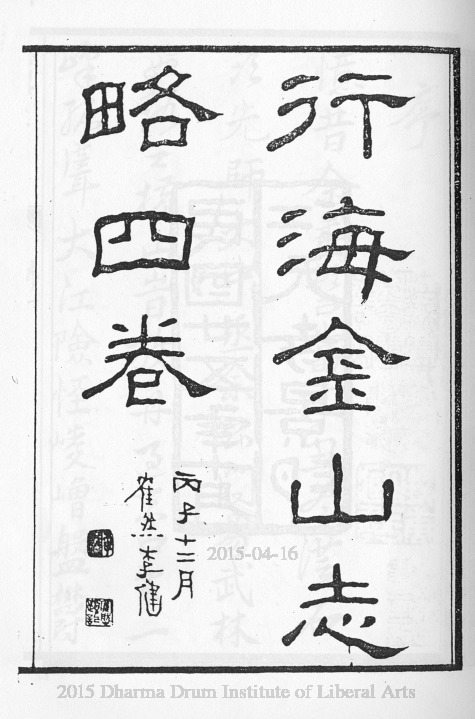 行海金山志
略四卷
丙子十二月
崔然李健
2015-04-16
2015 Dharma Drum Institute of Liberal Arts